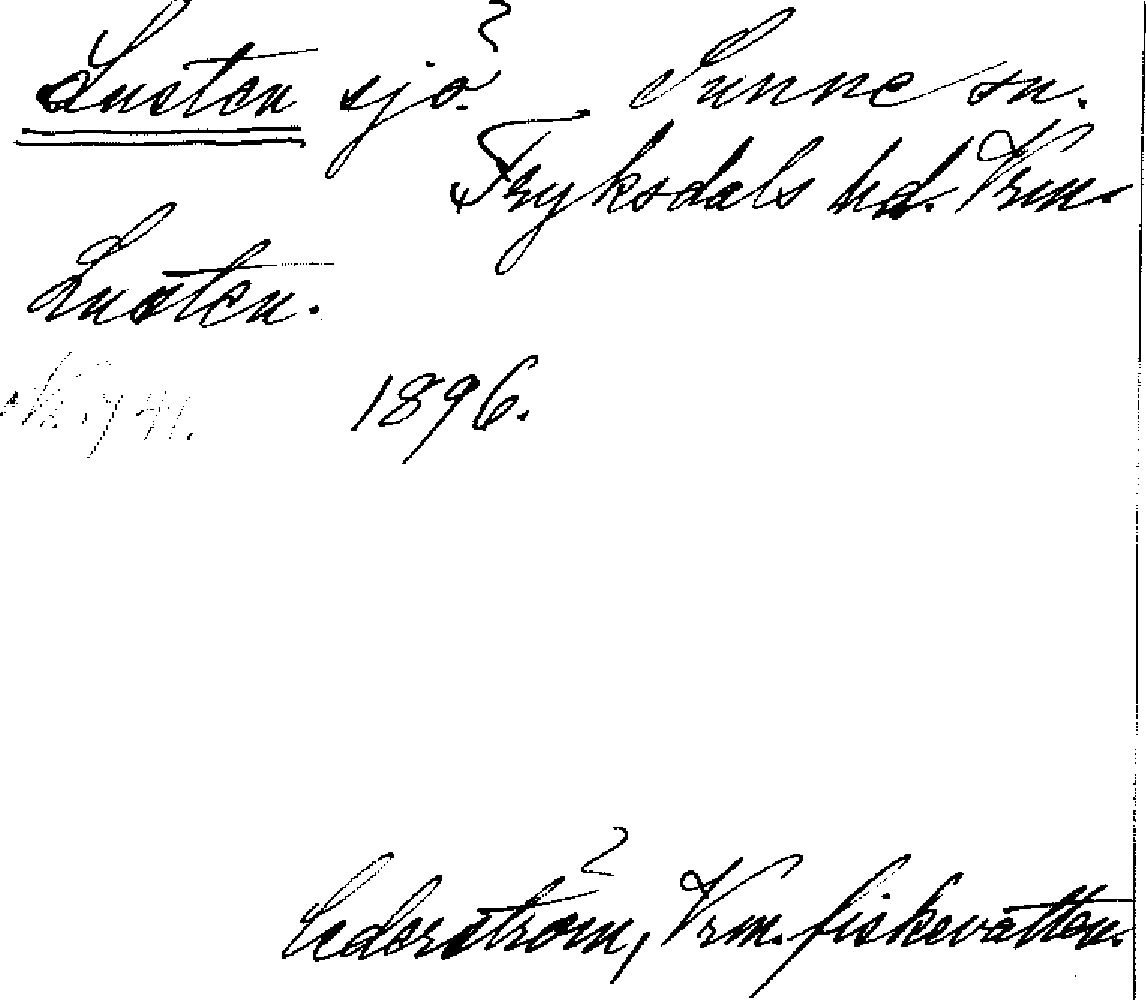 Lusten sjö Sunne sn.
Fryksdals hd. Vrm.
Lusten.
1896.
Cederström, Vrm. fiskevatten.